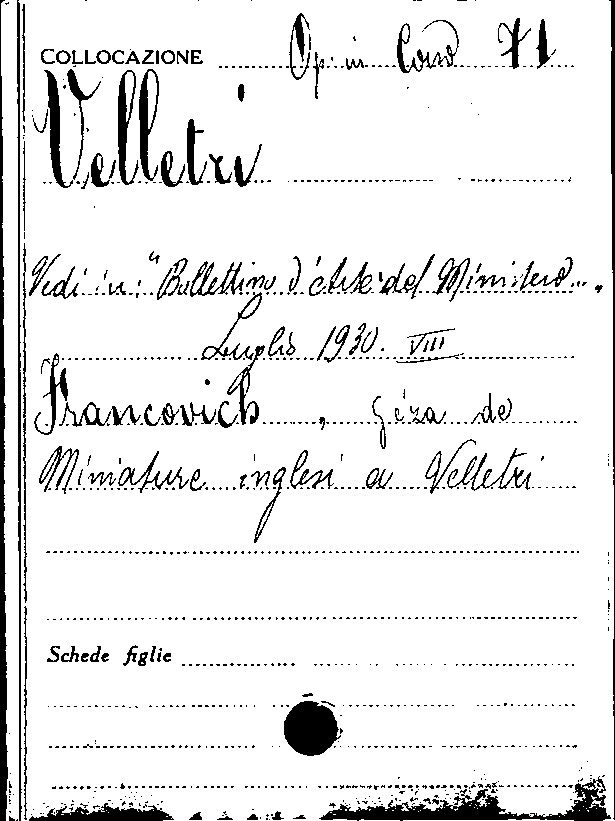 COLLOCAZIONE Op. in Corso 71
Velletri
Vedi in: "Bullettino d'Arte del Ministero..."
Luglio 1930. VIII
Francovich, Géza de
Miniature inglesi a Velletri
Schede figlie